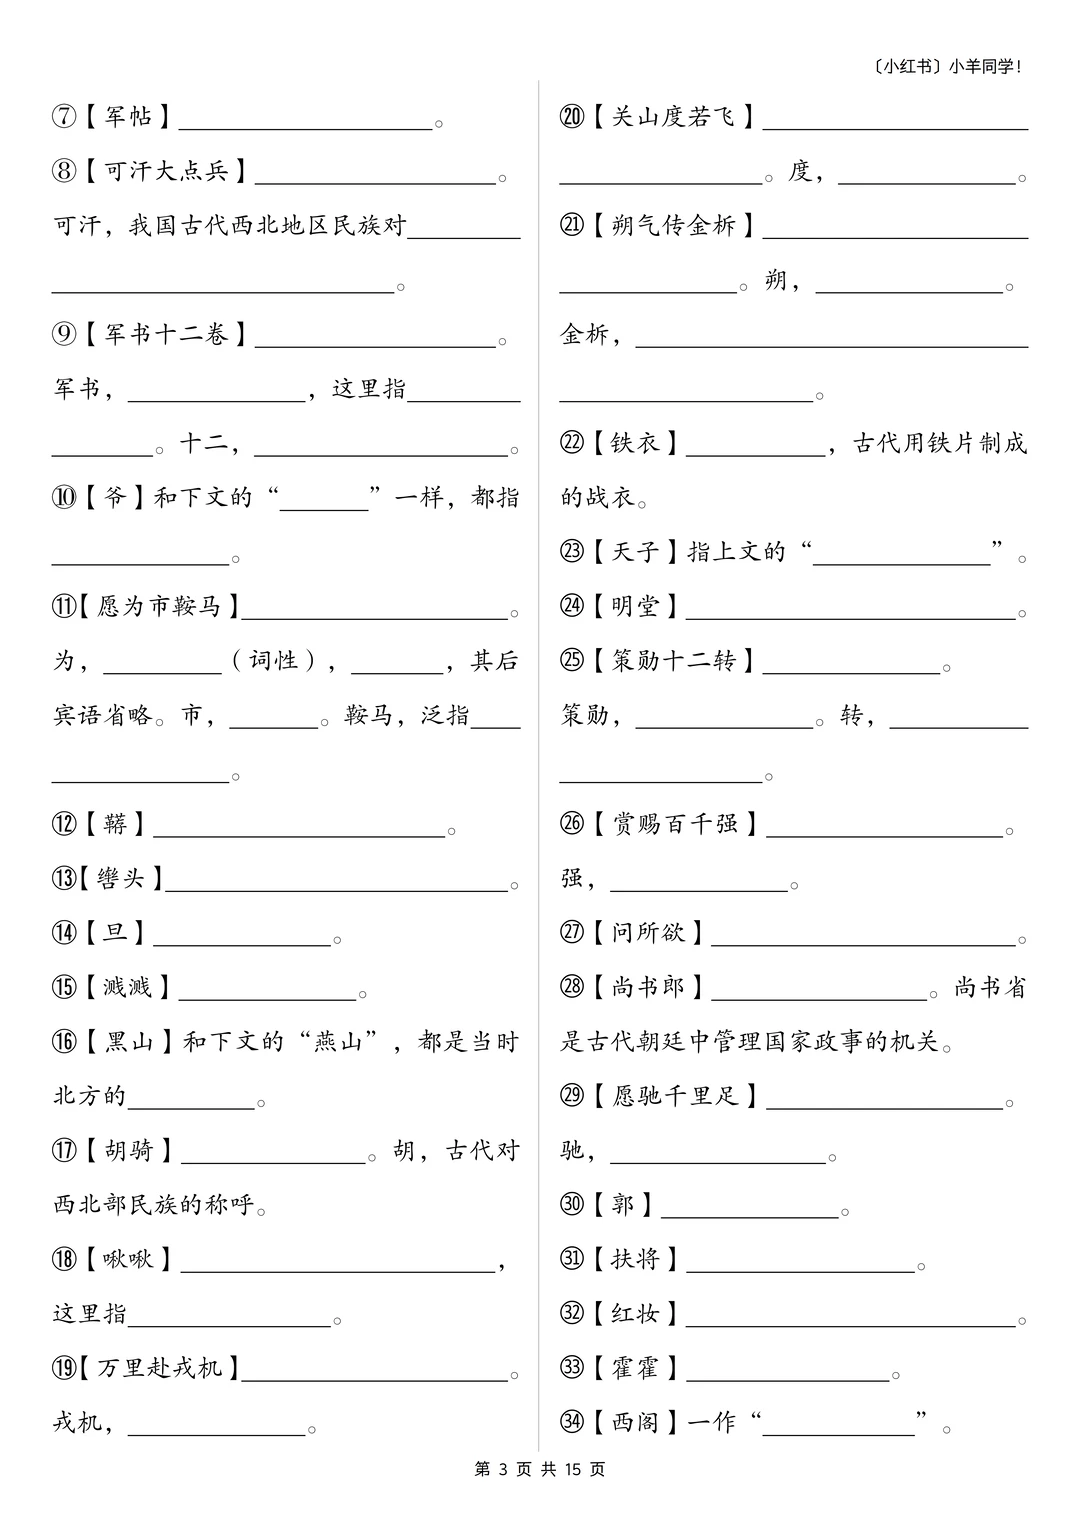 〔小红书〕小羊同学！
⑦【军帖】____________________。
⑧【可汗大点兵】___________________。
可汗，我国古代西北地区民族对_________
___________________________。
⑨【军书十二卷】___________________。
军书，______________，这里指_________
________。十二，____________________。
⑩【爷】和下文的“_______”一样，都指
______________。
⑪【愿为市鞍马】_____________________。
为，_________（词性），_______，其后
宾语省略。市，_______。鞍马，泛指____
______________。
⑫【鞯】_______________________。
⑬【辔头】___________________________。
⑭【旦】______________。
⑮【溅溅】______________。
⑯【黑山】和下文的“燕山”，都是当时
北方的__________。
⑰【胡骑】______________。胡，古代对
西北部民族的称呼。
⑱【啾啾】_________________________，
这里指________________。
⑲【万里赴戎机】_____________________。
戎机，______________。
⑳【关山度若飞】_____________________
________________。度，______________。
㉑【朔气传金柝】_____________________
______________。朔，_______________。
金柝，_______________________________
____________________。
㉒【铁衣】___________，古代用铁片制成
的战衣。
㉓【天子】指上文的“______________”。
㉔【明堂】__________________________。
㉕【策勋十二转】______________。
策勋，______________。转，___________
________________。
㉖【赏赐百千强】___________________。
强，______________。
㉗【问所欲】________________________。
㉘【尚书郎】_________________。尚书省
是古代朝廷中管理国家政事的机关。
㉙【愿驰千里足】___________________。
驰，_________________。
㉚【郭】______________。
㉛【扶将】__________________。
㉜【红妆】__________________________。
㉝【霍霍】________________。
㉞【西阁】一作“____________”。
第 3 页 共 15 页